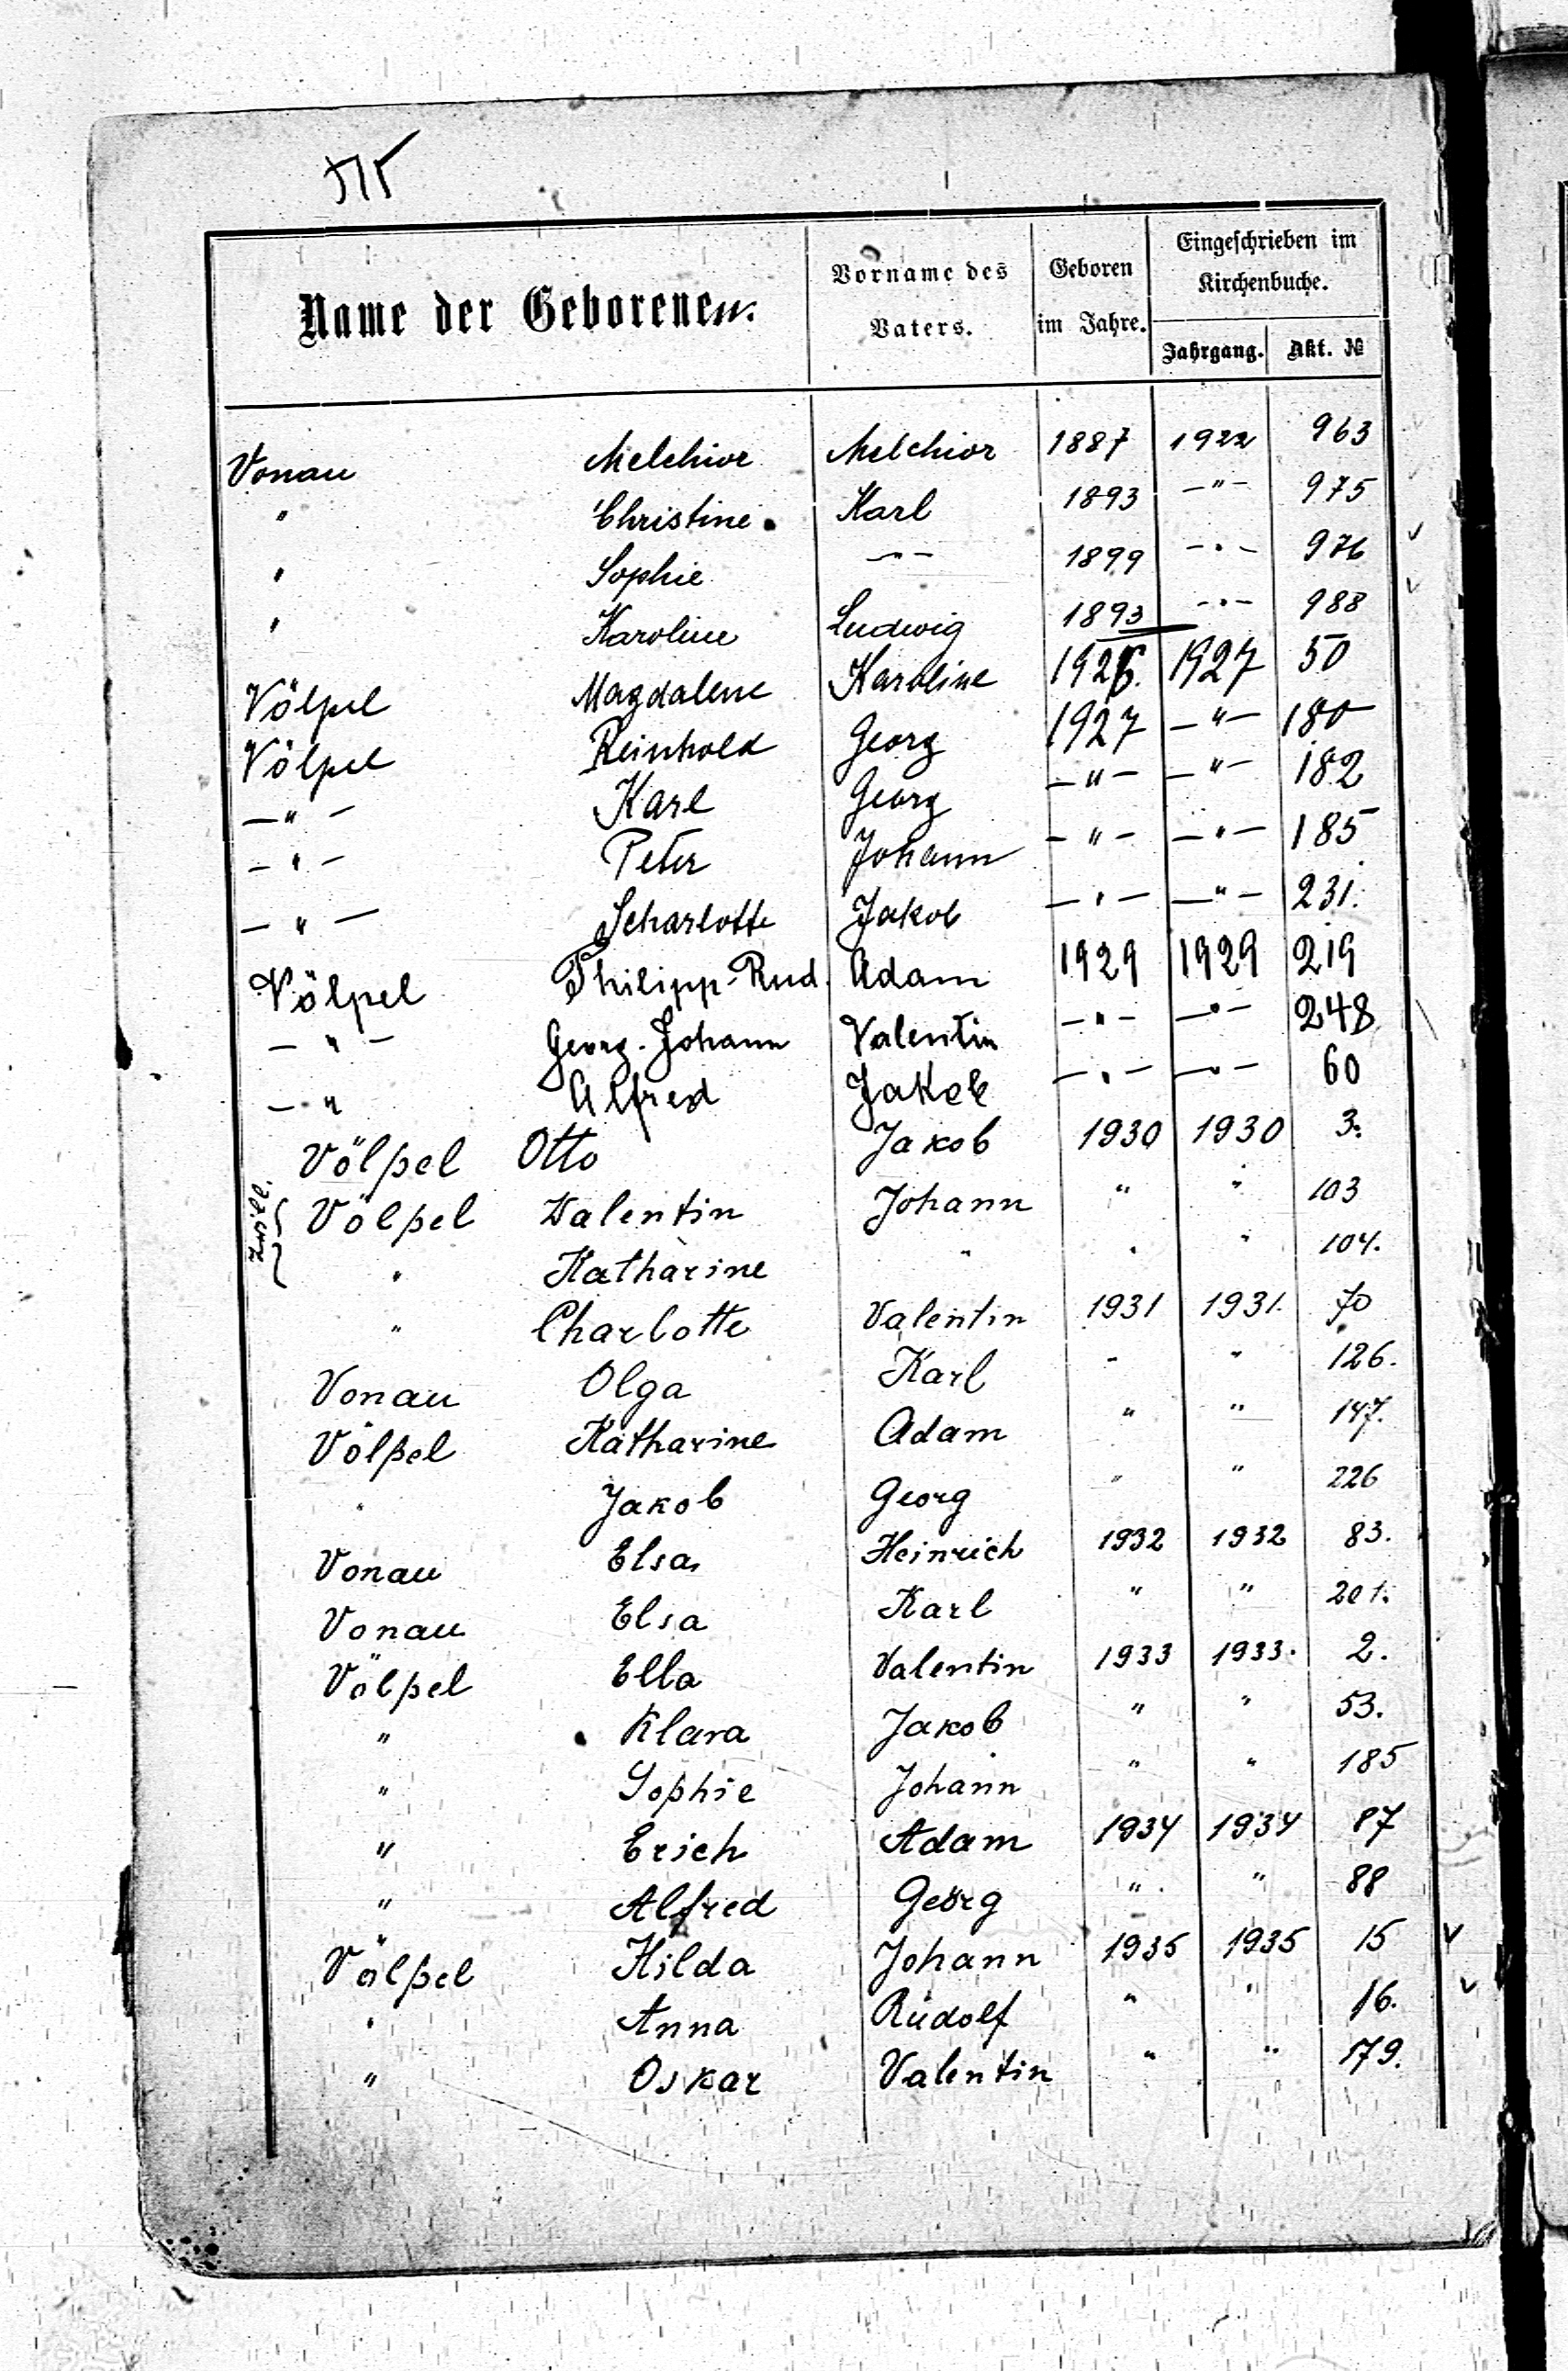 Name der Geborenen.
Vorname des Vaters.
Geboren im Jahre.
Eingeschrieben im Kirchenbuche.
Jahrgang. Akt. №
Vonau Melchior Melchior 1887 1922 963
" Christine Karl 1893 -"- 975
" Sophie -"- 1899 -"- 976
" Karoline Ludwig 1893 -"- 988
Völpel Magdalene Karoline 1926. 1927 50
Völpel Reinhold Georg 1927 -"- 180
-"- Karl Georg -"- -"- 182
-"- Peter Johann -"- -"- 185
-"- Scharlotte Jakob -"- -"- 231.
Völpel Philipp-Rud. Adam 1929 1929 219
-"- Georg-Johann Valentin -"- -"- 248
-" Alfred Jakob -"- -"- 60
Völpel Otto Jakob 1930 1930 3.
Zwill. Völpel Valentin Johann " " 103
" Katharine " " " 104.
" Charlotte Valentin 1931 1931. 70
Vonau Olga Karl " " 126.
Völpel Katharine Adam " " 147.
" Jakob Georg " " 226
Vonau Elsa Heinrich 1932 1932 83.
Vonau Elsa Karl " " 201.
Völpel Ella Valentin 1933 1933. 2.
" Klara Jakob " " 53.
" Sophie Johann " " 185
" Erich Adam 1934 1934 87
" Alfred Georg " " 88
Völpel Hilda Johann 1935 1935 15
" Anna Rudolf " " 16.
" Oskar Valentin " " 179.